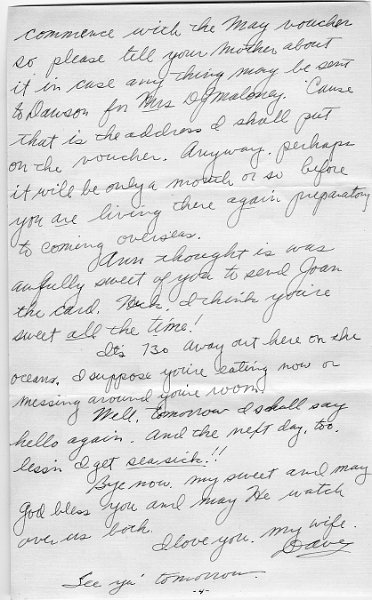 commence with the May voucher
so please tell your mother about
it in case any thing may be sent
to Dawson for Mrs DJ Maloney. 'Cause
that is the address I shall put
on the voucher. Anyway, perhaps
it will be only a month or so before
you are living there again preparatory
to coming overseas.
Ann thought is was
awfully sweet of you to send Joan
the card. Heck, I think you're
sweet all the time!
It's 730 away out here on the
oceans. I suppose you're eating now or
messing around you're room.
Well, tomorrow I shall say
hello again. And the next day, too,
less'n I get seasick!!
Bye now, my sweet and may
God bless you and may He watch
over us both.
I love you, my wife.
Dave
See ya' tomorrow.
-4-